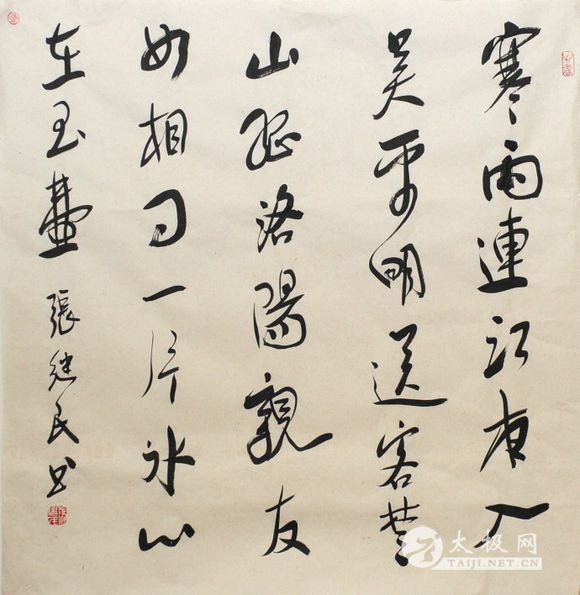 寒雨連江夜入
吳平明送客楚
山孤洛陽親友
如相問一片冰心
在玉壺
張继民书
太极网
TAIJI.NET.CN